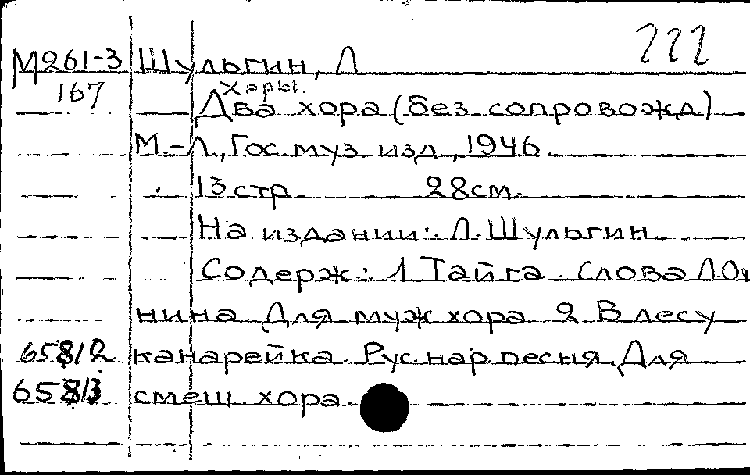 222
М261-3 Шульгин, Л
167 Хоры.
Два хора (без сопровожд)
М.-Л., Гос. муз. изд., 1946.
13 стр. 28см.
На издании: Л. Шульгин
Содерж: 1 Тайга. Слова Л Ош
нина Для муж хора 2. В лесу
65812 канарейка. Рус нар песня. Для
65813 смеш. хора.